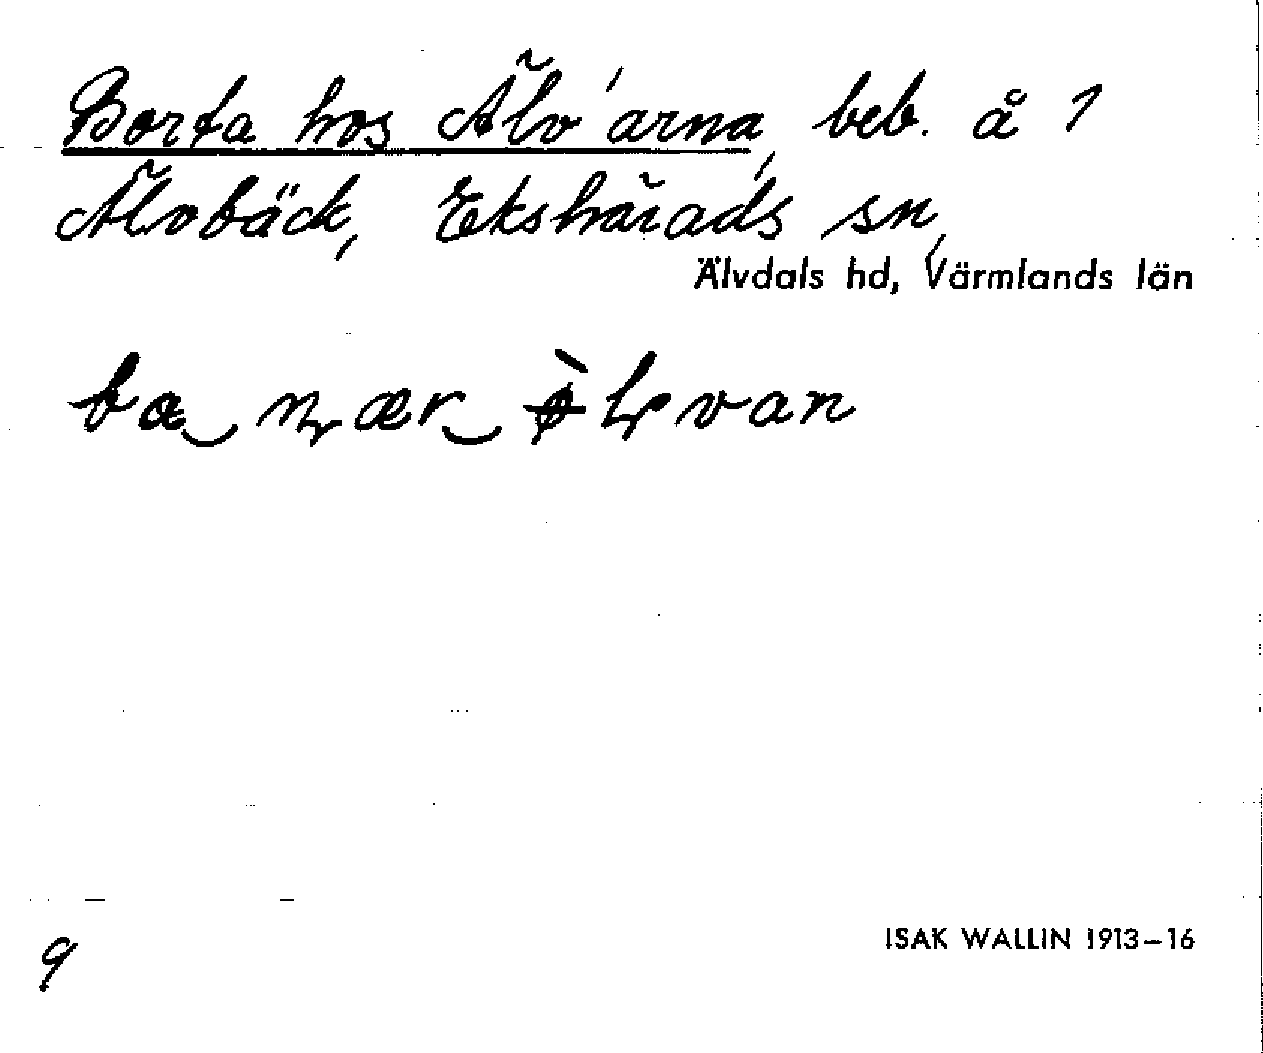 Borta hos Älv'arna, beb. å 1
Älvbäck, Ekshärads sn,
Älvdals hd, Värmlands län
ba‿ n̥ær‿ ø̀ɭvan
ISAK WALLIN 1913–16
9